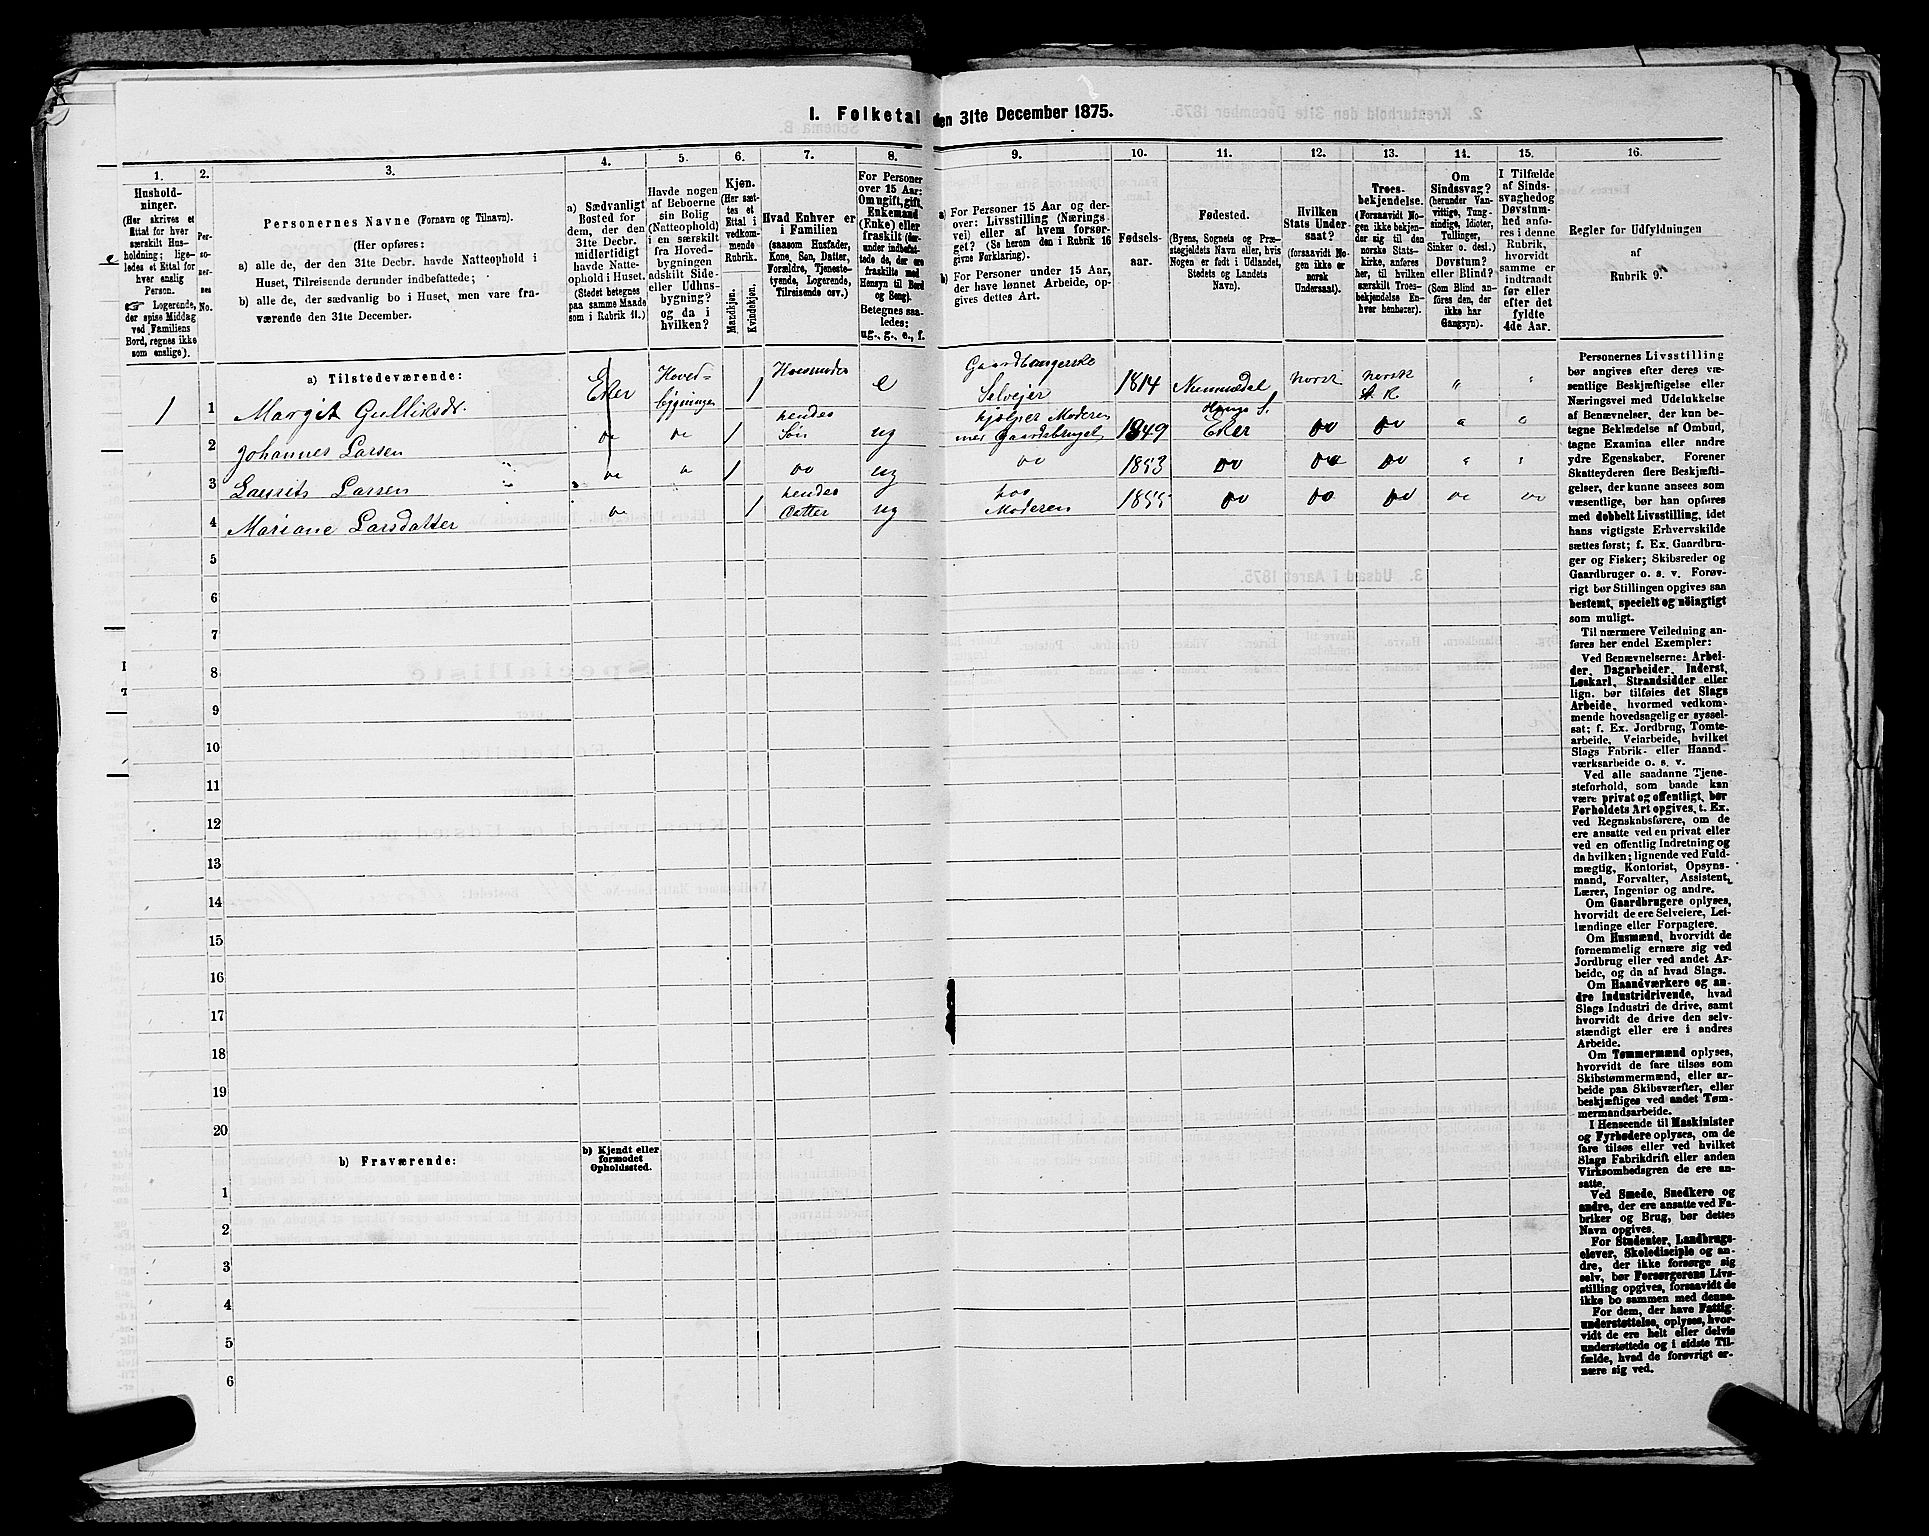 I. Folketal den 31te December 1875.
1.
2.
3.
4.
5.
6.
7.
8.
9.
10.
11.
12.
13.
14.
15.
16.
Hushold-
ninger.
(Her skrives et
Ettal for hver
særskilt Hus-
holdning; lige-
ledes et Ettal for
hver enslig
Person.
☞ Logerende,
der spise Middag
ved Familiens
Bord, regnes ikke
som enslige).
Per-
so-
ner-
nes
No.
Personernes Navne (Fornavn og Tilnavn).
(Her opføres:
a) alle de, der den 31te Decbr. havde Natteophold i
Huset, Tilreisende derunder indbefattede;
b) alle de, der sædvanlig bo i Huset, men vare fra-
værende den 31te December.
a) Sædvanligt
Bosted for
dem, der den
31te Decbr.
midlertidigt
havde Natte-
ophold i Huset.
(Stedet betegnes
paa samme Maade
som i Rubrik 11.)
Havde nogen
af Beboerne
sin Bolig
(Natteophold)
i en særskilt
fra Hoved-
bygningen
adskilt Side-
eller Udhus-
bygning?
og da i
hvilken?
Kjøn.
(Her sæt-
tes et
Ettal i
vedkom-
mende
Rubrik.
Mandkjøn.
Kvindekjøn.
Hvad Enhver er
i Familien
(saasom Husfader,
Kone, Søn, Datter,
Forældre, Tjeneste-
tyende, Logerende,
Tilreisende osv.)
For Personer
over 15 Aar:
Om ugift, gift,
Enkemand
(Enke) eller
fraskilt (der-
under indbefat-
tede de, der ere
fraskilte med
Hensyn til Bord
og Seng).
Betegnes saa-
ledes:
ug., g., e., f.
a) For Personer 15 Aar og der-
over: Livsstilling (Nærings-
vei) eller af hvem forsør-
get? (Se herom den i Rubrik 16
givne Forklaring).
b) For Personer under 15 Aar,
der have lønnet Arbeide, op-
gives dettes Art.
Fødsels-
aar.
Fødested.
(Byens, Sognets og Præ-
stegjeldets Navn eller, hvis
Nogen er født i Udlandet,
Stedets og Landets
Navn).
Hvilken
Stats Under-
saat?
(forsaavidt No-
gen ikke er
norsk
Undersaat).
Troes-
bekjendelse.
(Forsaavidt No-
gen ikke bekjen-
der sig til den
norske Stats-
kirke, anføres
her, til hvilken
særskilt Troes-
bekjendelse En-
hver henhører).
Om
Sindssvag?
(herunder Van-
vittige, Tung-
sindige, Idioter,
Tullinger,
Sinker o. desl.)
Døvstum?
eller Blind?
(Som Blind an-
føres den, der
ikke har
Gangsyn).
I Tilfælde
af Sinds-
svaghed og
Døvstum-
hed anfø-
res i denne
Rubrik,
hvorvidt
samme er
indtraadt
før eller
efter det
fyldte
4de Aar.
Regler for Udfyldningen
af
Rubrik 9.
a) Tilstedeværende:
1 1 Margit Gulliksdr. Eker Hoved-
bygningen 1 Husmoder e Gaardbrugerske
Selveier 1814 Nummedal norsk norsk
St. K. " "
2 Johannes Larsen do do 1 hendes
Søn ug hjælper Moderen
med Gaardsbruget 1849 Eker do do " "
3 Laurits Larsen do " 1 do ug do 1853 do do do " "
4 Mariane Larsdatter do 1 hendes
Datter ug hos
Moderen 1855 do do do do do
5
6
7
8
9
10
11
12
13
14
15
16
17
18
19
20
b) Fraværende:
b) Kjendt eller
formodet
Opholdssted.
1
2
3
4
5
6
Personernes Livsstilling
bør angives efter deres væ-
sentlige Beskjæftigelse eller
Næringsvei med Udelukkelse
af Benævnelser, der kun be-
tegne Beklædelse af Ombud,
tagne Examina eller andre
ydre Egenskaber. Forener
Skatteyderen flere Beskjæfti-
gelser, der kunne ansees som
væsentlige, bør han opføres
med dobbelt Livsstilling, idet
hans vigtigste Erhvervskilde
sættes først; f. Ex. Gaardbru-
ger og Fisker; Skibsreder og
Gaardbruger o. s. v. Forøv-
rigt bør Stillingen opgives saa
bestemt, specielt og nöiagtigt
som muligt.
Til nærmere Veiledning an-
føres her endel Exempler:
Ved Benævnelserne: Arbei-
der, Dagarbeider, Inderst,
Løskarl, Strandsidder eller
lign. bør tilføies det Slags
Arbeide, hvormed vedkom-
mende hovedsagelig er syssel-
sat; f. Ex. Jordbrug, Tomte-
arbeide, Veiarbeide, hvilket
Slags Fabrik- eller Haand-
værksarbeide o. s. v.
Ved alle saadanne Tjene-
steforhold, som baade kan
være privat og offentligt, bør
Forholdets Art opgives, t. Ex.
ved Regnskabsførere, om de
ere ansatte ved en privat eller
ved en offentlig Indretning og
da hvilken; lignende ved Fuld-
mægtig, Kontorist, Opsyns-
mand, Forvalter, Assistent,
Lærer, Ingeniør og andre.
Om Gaardbrugere oplyses,
hvorvidt de ere Selveiere, Lei-
lændinge eller Forpagtere.
Om Husmænd, hvorvidt de
fornemmelig ernære sig ved
Jordbrug eller ved andet Ar-
beide, og da af hvad Slags.
Om Haandværkere og an-
dre Industridrivende, hvad
Slags Industri de drive, samt
hvorvidt de drive den selv-
stændigt eller ere i andres
Arbeide.
Om Tømmermænd oplyses,
hvorvidt de fare tilsøs som
Skibstømmermænd, eller ar-
beide paa Skibsværfter, eller
beskjæftiges ved andet Tøm-
mermandsarbeide.
I Henseende til Maskinister
og Fyrbødere oplyses, om de
fare tilsøs eller ved hvilket
Slags Fabrikdrift eller anden
Virksomhedsgren de ere an-
satte.
Ved Smede, Snedkere og
andre, der ere ansatte ved Fa-
briker og Brug, bør dettes
Navn opgives.
For Studenter, Landbrugs-
elever, Skoledisciple og an-
dre, der ikke forsørge sig
selv, bør Forsørgerens Livs-
stilling opgives, forsaavidt de
ikke bo sammen med denne.
For dem, der have Fattig-
understøttelse, oplyses, hvor-
vidt de ere helt eller delvis
understøttede og i sidste Til-
fælde, hvad de forøvrigt er-
nære sig ved.